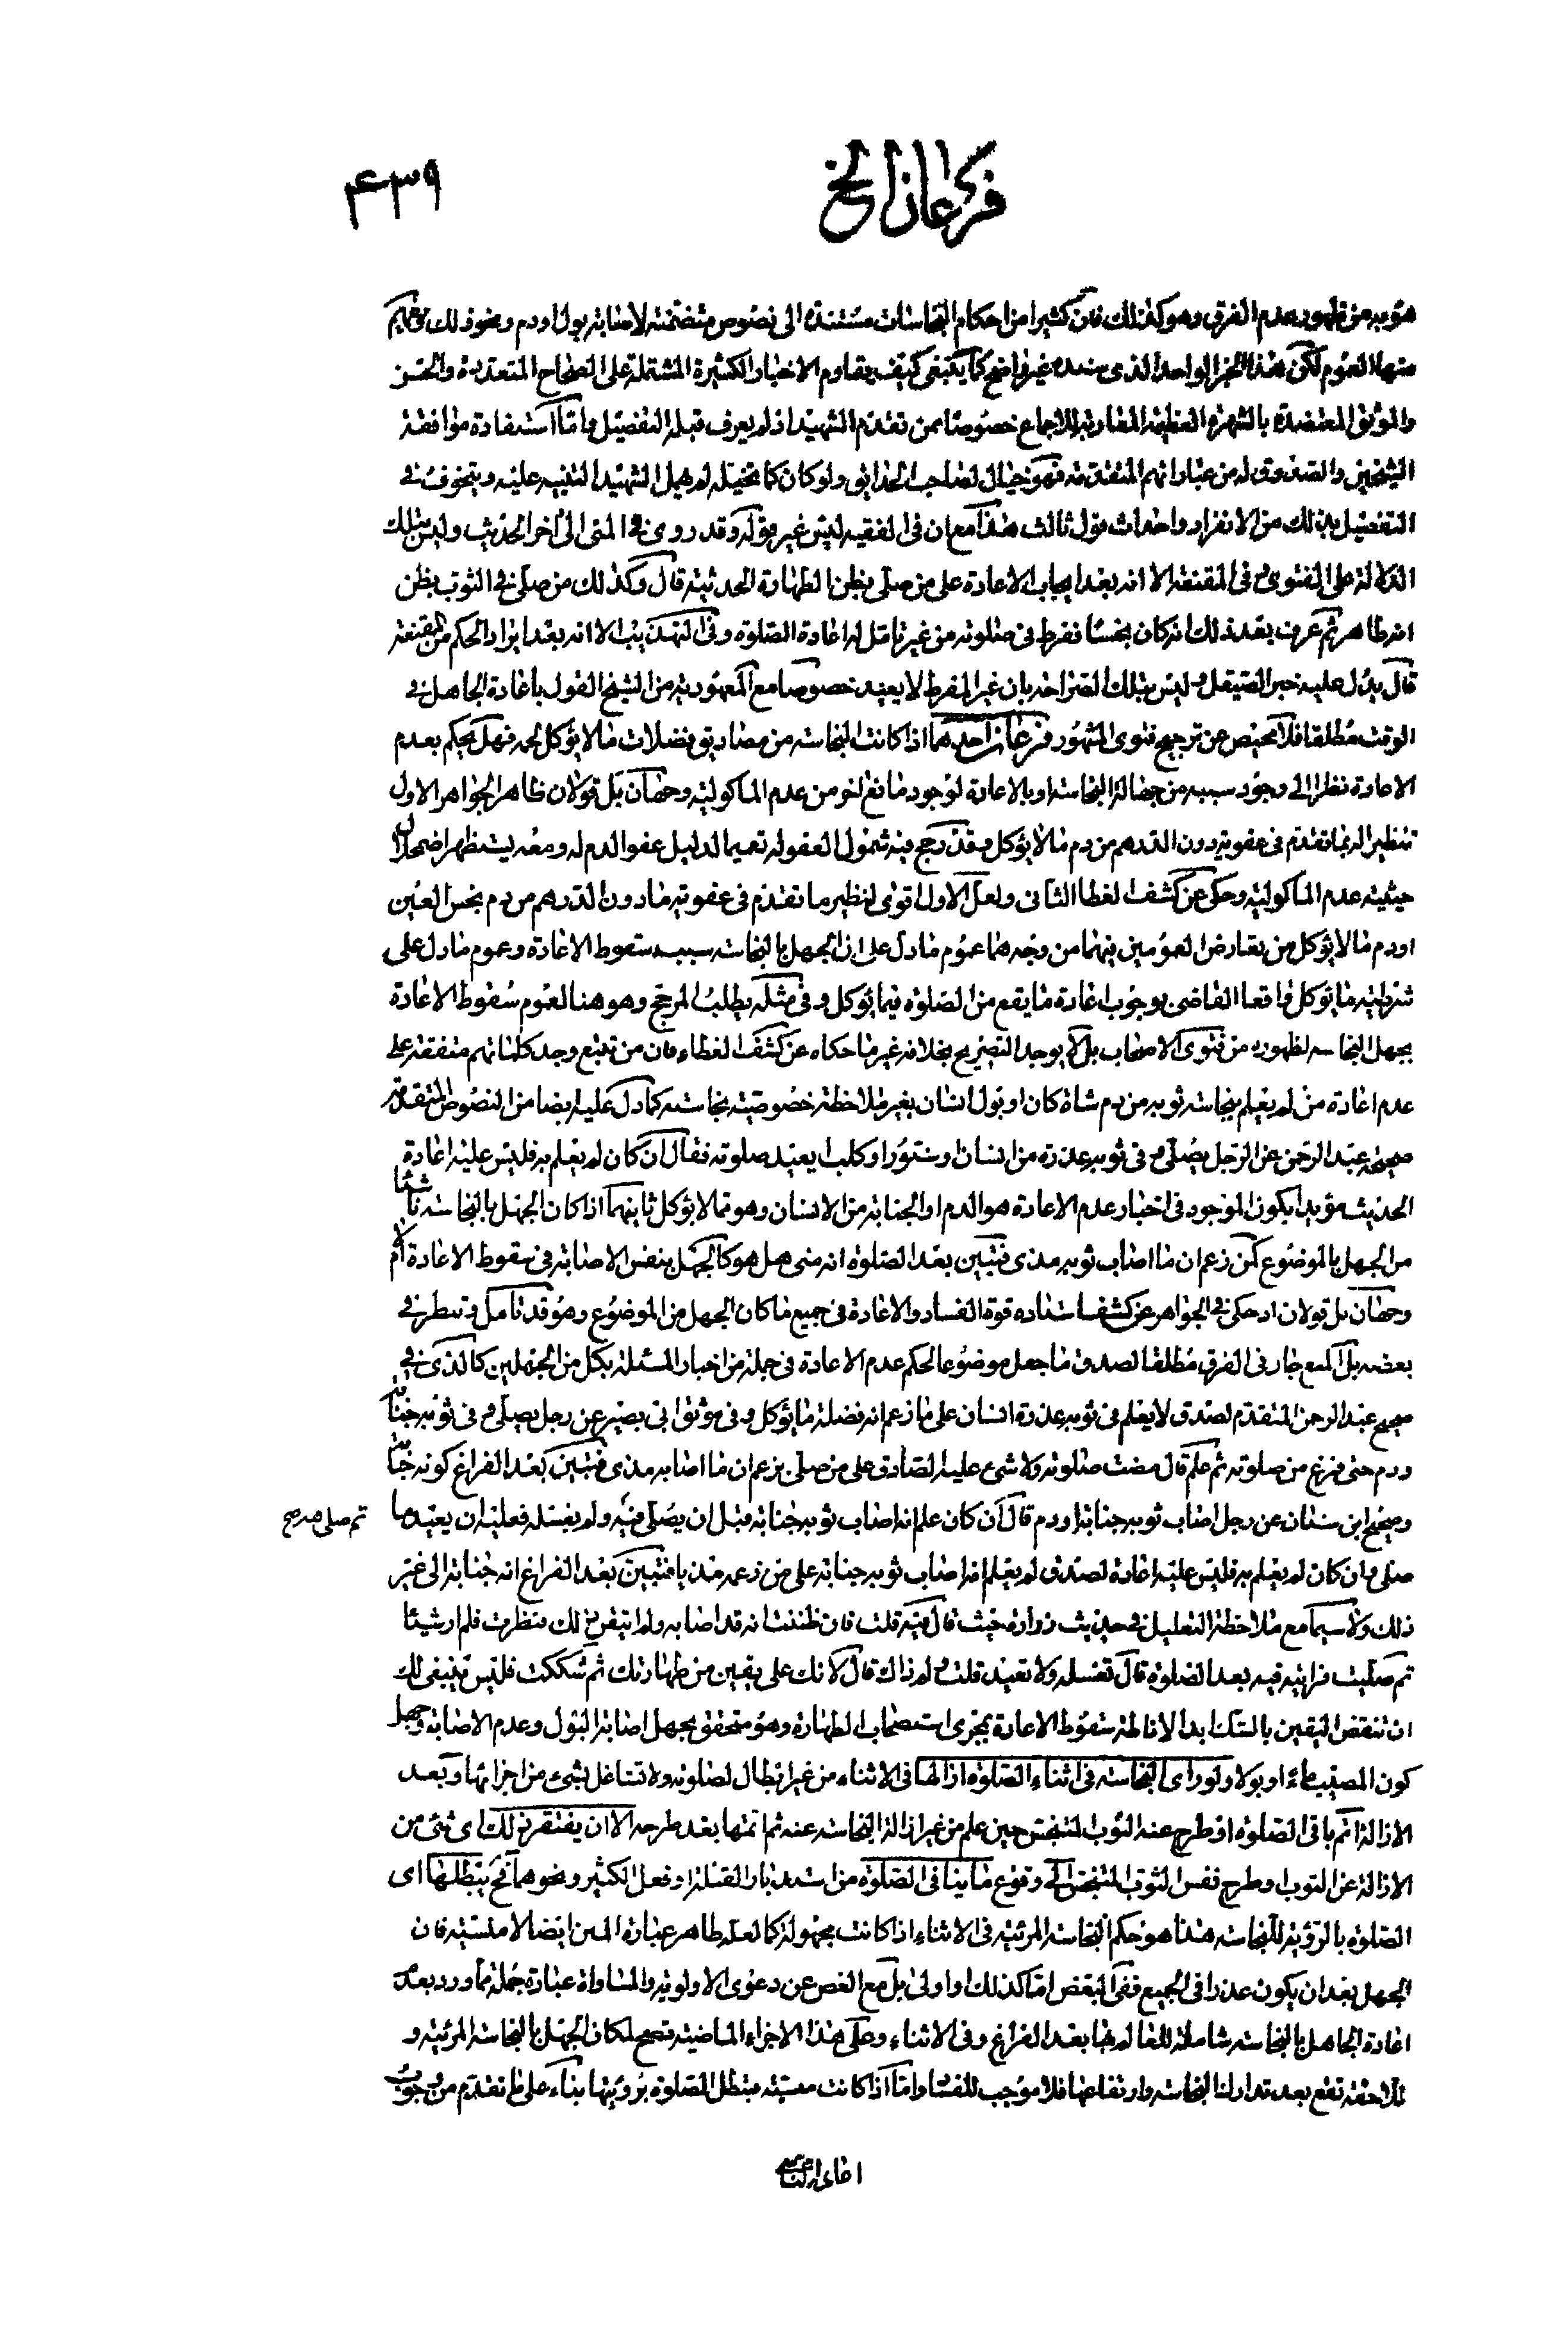 فرعان الخ
٤٣٩
مؤيد من ظهور عدم الفرق وهو كذلك فان كثيرا من احكام النجاسات مستندة الى نصوص متضمنة لاصابة بول او دم ونحو ذلك
منها العموم لكن هذا الخبر الواحد الذى سنده غير واضح كما ينبغى كيف يقاوم الاخبار الكثيرة المشتملة على الصحاح المتعددة والحسن
والموثق المعتضدة بالشهرة العظيمة المقاربة للاجماع خصوصا ممن تقدم الشهيد اذ لم يعرف قبله التفصيل واما استفادة موافقة
الشيخين والصدوق له من عباراتهم المتقدمة فهو خيال لصاحب الحدائق ولو كان كما تخيله لم يهمل الشهيد التنبيه عليه ويتخوف فى
التفصيل بذلك من الانفراد واحداث قول ثالث هذا مع ان فى الفقيه ليس غير قوله وقد روى فى المنى الى آخر الحديث وليس بتلك
الدلالة على الفتوى و فى المقنعة الا انه بعد ايجاب الاعادة على من صلى بظن الطهارة الحدثية قال وكذلك من صلى فى الثوب بظن
انه طاهر ثم عرف بعد ذلك انه كان نجسا ففرط فى صلوته من غير تامل له اعادة الصلوة وفى التهذيب الا انه بعد ايراد الحكم من المقنعة
قال يدل عليه خبر الصيقل و ليس بتلك الصراحة بان غير المفرط لا يعيد خصوصا مع المعهودية من الشيخ القول باعادة الجاهل فى
الوقت مطلقا فلا محيص عن ترجيح فتوى المشهور فرعان احدهما اذا كانت النجاسة من مصاديق فضلات ما لا يؤكل لحمه فهل يحكم بعدم
الاعادة نظرا الى وجود سببه من جهالة النجاسة او بالاعادة لوجود مانع اخر من عدم الماكولية وجهان بل قولان ظاهر الجواهر الاول
تنظيرا له بما تقدم فى عفوية دون الدرهم من دم ما لا يؤكل و قد رجح فيه شمول العفو له تعميما لدليل عفو الدم له ومعه يستظهر اضمحلال
حيثية عدم الماكولية وحكى عن كشف الغطا الثانى ولعل الاول اقوى لنظير ما تقدم فى عفوية ما دون الدرهم من دم نجس العين
او دم ما لا يؤكل من تعارض العمومين بينهما من وجه هما عموم ما دل على ان الجهل بالنجاسة سبب سقوط الاعادة وعموم ما دل على
شرطية ما يؤكل واقعا القاضى بوجوب اعادة ما يقع من الصلوة فيما يؤكل و فى مثله يطلب المرجح وهو هنا لعموم سقوط الاعادة
بجهل النجاسة لظهوره من فتوى الاصحاب بل لا يوجد التصريح بخلافه غير ما حكاه عن كشف الغطاء فان من تتبع وجد كلماتهم متفقة على
عدم اعادة من لم يعلم بنجاسة ثوبه من دم شاة كان او بول انسان بغير ملاحظة خصوصية نجاسته كما دل عليه ايضا من النصوص المتقدمة
صحيحة عبد الرحمن عن الرجل يصلى و فى ثوبه عذرة من انسان او سنور او كلب ايعيد صلوته فقال ان كان لم يعلم به فليس عليه اعادة
الحديث مؤيدا بكون الموجود فى اخبار عدم الاعادة هو الدم او الجنابة من الانسان وهو مما لا يؤكل ثانيهما اذا كان الجهل بالنجاسة ناشئا
من الجهل بالموضوع كمن زعم ان ما اصاب ثوبه مذى فتبين بعد الصلوة انه منى هل هو كالجهل بنفس الاصابة فى سقوط الاعادة ام لا
وجهان بل قولان اذ حكى فى الجواهر عن كشف استاده قوة الفساد والاعادة فى جميع ما كان الجهل من الموضوع وهو قد تامل و تنظر فى
بعضه بل المنع جار فى الفرق مطلقا لصدق ما جعل موضوعا لحكم عدم الاعادة فى جملة من اخبار المسئلة بكل من الجهلين كالذى فى
صحيح عبد الرحمن المتقدم لصدق لا يعلم فى ثوبه عذرة انسان على ما زعم انه فضلة ما يؤكل و فى موثق ابى بصير عن رجل يصلى و فى ثوبه جنابة
ودم حتى فرغ من صلوته ثم علم قال مضت صلوته ولا شىء عليه الصادق على من صلى بزعم ان ما اصابه مذى فتبين بعد الفراغ كونه جنابة
وصحيح ابن سنان عن رجل اصاب ثوبه جنابة او دم قال ان كان علم انه اصاب ثوبه جنابة قبل ان يصلى فيه ولم يغسله فعليه ان يعيد ما
ثم صلى فيه صح
صلى وان كان لم يعلم به فليس عليه اعادة لصدق لم يعلم انه اصاب ثوبه جنابة على من زعمه مذيا فتبين بعد الفراغ انه جنابة الى غير
ذلك ولا سيما مع ملاحظة التعليل فى حديث زرارة حيث قال فيه قلت فان ظننت انه قد اصابه ولم اتيقن ذلك فنظرت فلم ار شيئا
ثم صليت فرايته فيه بعد الصلوة قال تغسله ولا تعيد قلت و لم ذاك قال لانك على يقين من طهارتك ثم شككت فليس ينبغى لك
ان تنقض اليقين بالشك ابدا لاناطة سقوط الاعادة بمجرى استصحاب الطهارة وهو متحقق بجهل اصابة البول وعدم الاصابة وجهل
كون المصيب ماء او بولا ولو راى النجاسة فى اثناء الصلوة ازالها فى الاثناء من غير ابطال لصلوته ولا تشاغل بشىء من اجزائها وبعد
الازالة اتم باقى الصلوة او طرح عنه الثوب المتنجس حين علم من غير ازالة النجاسة عنه ثم اتمها بعد طرحه الا ان يفتقر ذلك اى شىء من
الازالة عن الثوب او طرح نفس الثوب المتنجس الى وقوع ما ينافى الصلوة من استدبار القبلة او فعل الكثير ونحوهما فح يبطلها اى
الصلوة بالرؤية للنجاسة هذا هو حكم النجاسة المرئية فى الاثناء اذا كانت مجهولة كما لعله ظاهر عبارة المتن ايضا لا منسية فان
الجهل بعد ان يكون عذرا فى الجميع ففى البعض اما كذلك او اولى بل مع الغض عن دعوى الاولوية والمساواة عبارة جملة مما ورد بعدم
اعادة الجاهل بالنجاسة شاملة للعالم بها بعد الفراغ وفى الاثناء وعلى هذا الاجزاء الماضية تصح لمكان الجهل بالنجاسة المرئية و
اللاحقة تقع بعد تدارك النجاسة وارتفاعها فلا موجب للفساد واما اذا كانت منسية فتبطل الصلوة برؤيتها بناء على ما تقدم من وجوب
اعادة الناسى